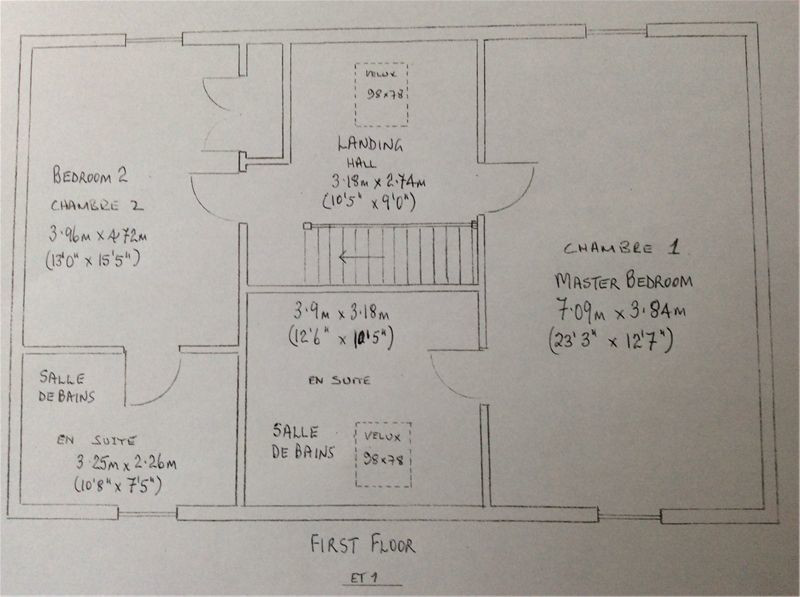 BEDROOM 2
CHAMBRE 2
3.96m x 4.72m
(13'0" x 15'5")
VELUX
98x78
LANDING
HALL
3.18m x 2.74m
(10'5" x 9'0")
CHAMBRE 1
MASTER BEDROOM
7.09m x 3.84m
(23'3" x 12'7")
3.9m x 3.18m
(12'6" x 10'5")
EN SUITE
SALLE
DE BAINS
VELUX
98x78
SALLE
DE BAINS
EN SUITE
3.25m x 2.26m
(10'8" x 7'5")
FIRST FLOOR
ET 1